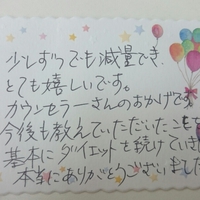 少しずつでも減量でき、
とても嬉しいです。
カウンセラーさんのおかげです
今後も教えていただいたことを
基本にダイエットを続けていき
本当にありがとうございました